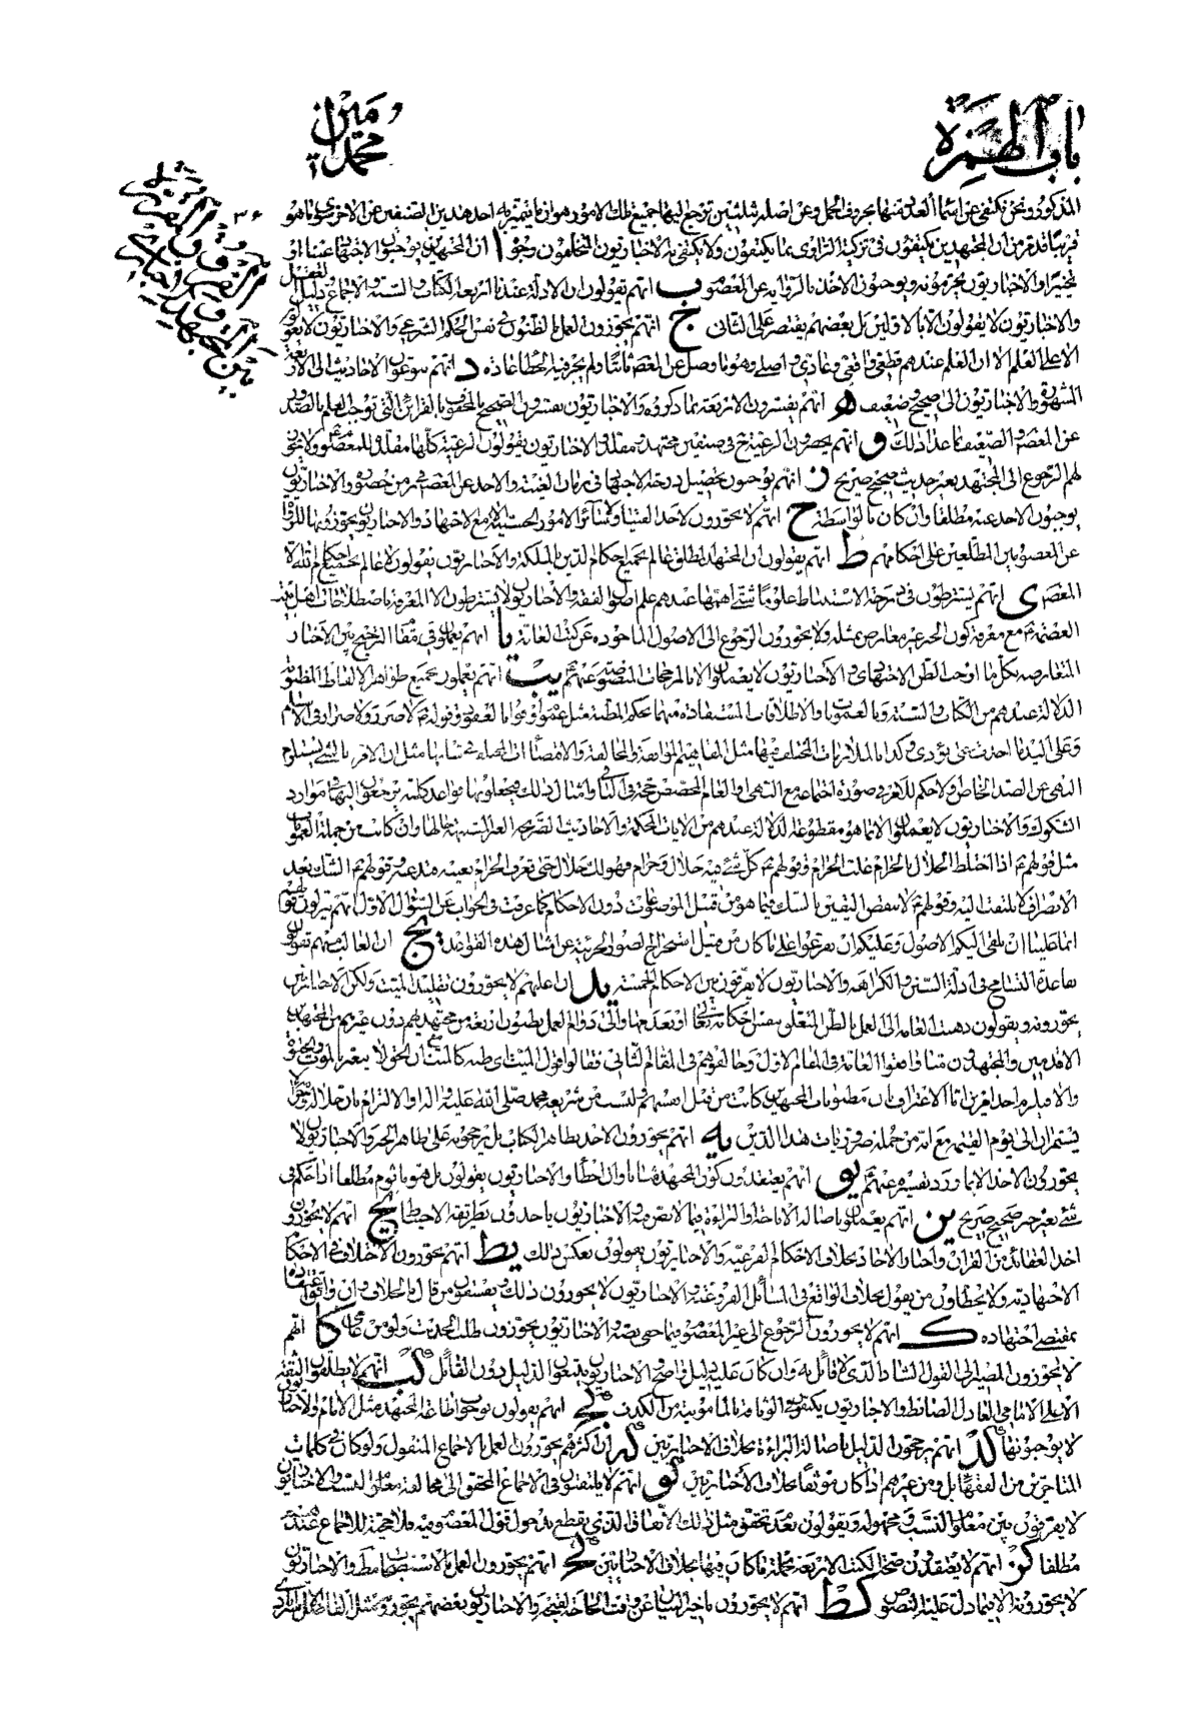 باب الهمزة
محمد امين
٣٤
الفرق بين المجتهد
المذكور ونحن نكتفي عن اسماء العدد منها بحروف الجمل وعن اصل ترجع اليها جميع تلك الامور وهو ان ما يتميز به احد هذين الصنفين عن الاخر
من ان المجتهدين يكتفون في تزكية الراوي بما يكتفون ولا يكتفى به الاخباريون المخلفون وجوا ا ان المجتهدين يوجبون الاجتهاد عينا او
تخييرا والاخباريون يحرمونه ويوجبون الاخذ بالرواية عن المعصوم ب انهم يقولون ان الادلة عندنا اربعة الكتاب والسنة والاجماع ودليل العقل
والاخباريون لا يقولون الا بالاولين بل بعضهم يقتصر على الثاني ج انهم يجوزون العمل بالظنون في نفس الحكم الشرعي والاخباريون لا يعولون
الا على العلم الا ان العلم عندهم قطعي واقعي وعادي واصلي وهو ما وصل عن المعصوم ثابتا ولم يجز فيه الخطا عادة د انهم ينوعون الاحاديث الى الاربعة
المشهورة والاخباريون الى صحيح وضعيف ه انهم يفسرون الاربعة بما ذكروه والاخباريون يفسرون الصحيح بالمحفوف بالقرائن التي توجب العلم بالصدور
عن المعصوم والضعيف بما عدا ذلك و انهم يحصرون الرعية في صنفين مجتهد ومقلد والاخباريون يقولون الرعية كلها مقلد للمعصوم ولا يجوز
لهم الرجوع الى المجتهد بغير حديث صحيح صريح ز انهم يوجبون تحصيل درجة الاجتهاد في زمان الغيبة والاخذ عن المعصوم في زمن حضوره والاخباريون
يوجبون الاخذ عنه مطلقا وان كان بالواسطة ح انهم لا يجوزون لاحد الفتيا ولا سائر الامور الحسبية الا مع الاجتهاد والاخباريون يجوزونها للرواة
عن المعصومين المطلعين على احكامهم ط انهم يقولون ان المجتهد المطلق عالم بجميع احكام الدين بالملكة والاخباريون يقولون لا عالم بجميع احكام الله الا
المعصوم ى انهم يشترطون في درجة الاستنباط علوما شتى اهمها عندهم علم اصول الفقه والاخباريون لا يشترطون الا المعرفة باصطلاحات اهل بيت
العصمة مع معرفة كون الخبر غير معارض بمثله ولا يجوزون الرجوع الى الاصول الماخوذة عن كتب العامة يا انهم يعملون في مقام الترجيح بين الاخبار
المتعارضة بكل ما اوجب الظن الاجتهادي والاخباريون لا يعملون الا بالمرجحات المنصوصة عنهم يب انهم يعملون بجميع ظواهر الالفاظ المظنون
الدلالة عندهم من الكتاب والسنة وبالعمومات والاطلاقات المستفادة منهما بحكم المظنة مثل عموم اوفوا بالعقود وقوله لا ضرر ولا ضرار في الاسلام
وعلى اليد ما اخذت حتى تؤدي وكذا بالملازمات المختلف فيها مثل المفاهيم الموافقة والمخالفة مثل ان الامر بالشيء يستلزم
النهي عن الضد الخاص ولا حكم للامر في صورة اجتماعه مع النهي والعام المخصص حجة في الباقي وامثال ذلك ويجعلونها قواعد كلية يرجعون اليها في موارد
الشكوك والاخباريون لا يعملون الا بما هو مقطوع الدلالة عندهم من الايات المحكمة والاحاديث الصريحة وان كانت من جملة العمومات
مثل قولهم اذا اختلط الحلال بالحرام غلب الحرام وقولهم كل شيء فيه حلال وحرام فهو لك حلال حتى تعرف الحرام بعينه فتدعه وقولهم الشك بعد
الانصراف لا يلتفت اليه وقولهم لا ينقض اليقين بالشك فيما هو من قبيل الموضوعات دون الاحكام كما عرفت في الجواب عن السؤال الاول
انما علينا ان نلقى اليكم الاصول وعليكم ان تفرعوا على ما كان من قبيل استخراج الصور الجزئية عن امثال هذه القواعد يج ان الغالب منهم يقولون
بقاعدة التسامح في ادلة السنن والكراهة والاخباريون لا يفرقون بين الاحكام الخمسة يد ان اغلبهم لا يجوزون تقليد الميت ولكن الاخباريين
يجوزونه ويقولون ذهبت العامة الى العمل بالظن
الاقدمين والمجتهدون منا وافقوا العامة في المقام الاول وخالفوهم في المقام الثاني فقالوا قول الميت كالميت ان الحق لا يتغير بالموت والحيوة
محمد صلى الله عليه واله
يستمران الى يوم القيمة مع انه من جملة ضروريات هذا الدين يه انهم يجوزون الاخذ بظاهر الكتاب بل يرجحونه على ظاهر الخبر والاخباريون لا
يجوزون الاخذ الا بما ورد تفسيره عنهم يو انهم يعتقدون كون المجتهد مثابا وان اخطأ والاخباريون يقولون بل هو ماثوم مطلقا اذا حكم في
شيء بغير خبر صحيح صريح يز انهم يعملون باصالة الاباحة او البراءة فيما لا نص فيه والاخباريون ياخذون بطريقة الاحتياط يح انهم لا يجوزون
اخذ العقائد من القران واخبار الاحاد بخلاف الاحكام الفرعية والاخباريون يقولون بعكس ذلك يط انهم يجوزون الاختلاف في الاحكام
الاجتهادية ولا يخطاون من يقول بخلاف الواقع في المسائل الفروعية والاخباريون لا يجوزون ذلك ويفسقون من قال بالخلاف وان وافق اعتقاده
بمقتضى اجتهاده ك انهم لا يجوزون الرجوع الى غير المعصوم والاخباريون يجوزون طلب الحديث ولو من عامي كا انهم
لا يجوزون المصير الى القول الشاذ الذي لا قائل به وان كان عليه دليل واضح والاخباريون يتبعون الدليل دون القائل كب انهم لا يطلقون الثقة
الا على الامامي العادل الضابط والاخباريون يكتفون في الوثاقة بالمامونية من الكذب كج انهم يقولون بوجوب اطاعة المجتهد مثل الامام والاخباريون
لا يوجبونها كد انهم يرجحون الدليل باصالة البراءة بخلاف الاخباريين كه ان اكثرهم يجوزون العمل بالاجماع المنقول ولو كان في كلمات
المتاخرين من الفقهاء بل ومن غيرهم اذا كان موثقا بخلاف الاخباريين كو انهم لا يلتفتون في الاجماع المحقق الى مخالفة معلوم النسب والاخباريون
لا يفرقون بين معلوم النسب ومجهوله ويقولون بعد تحقق مثل ذلك الاتفاق الذي يقطع بدخول قول المعصوم فيه فلا حجية للاجماع عندهم
مطلقا كز انهم لا يعتقدون صحة الكتب الاربعة بجملة ما كان فيها بخلاف الاخباريين كح انهم يجوزون العمل بالاستصحاب مطلقا والاخباريون
لا يجوزونه الا فيما دل عليه النصوص كط انهم لا يجوزون تاخير البيان عن وقت الحاجة والاخباريون بعضهم يجوزه